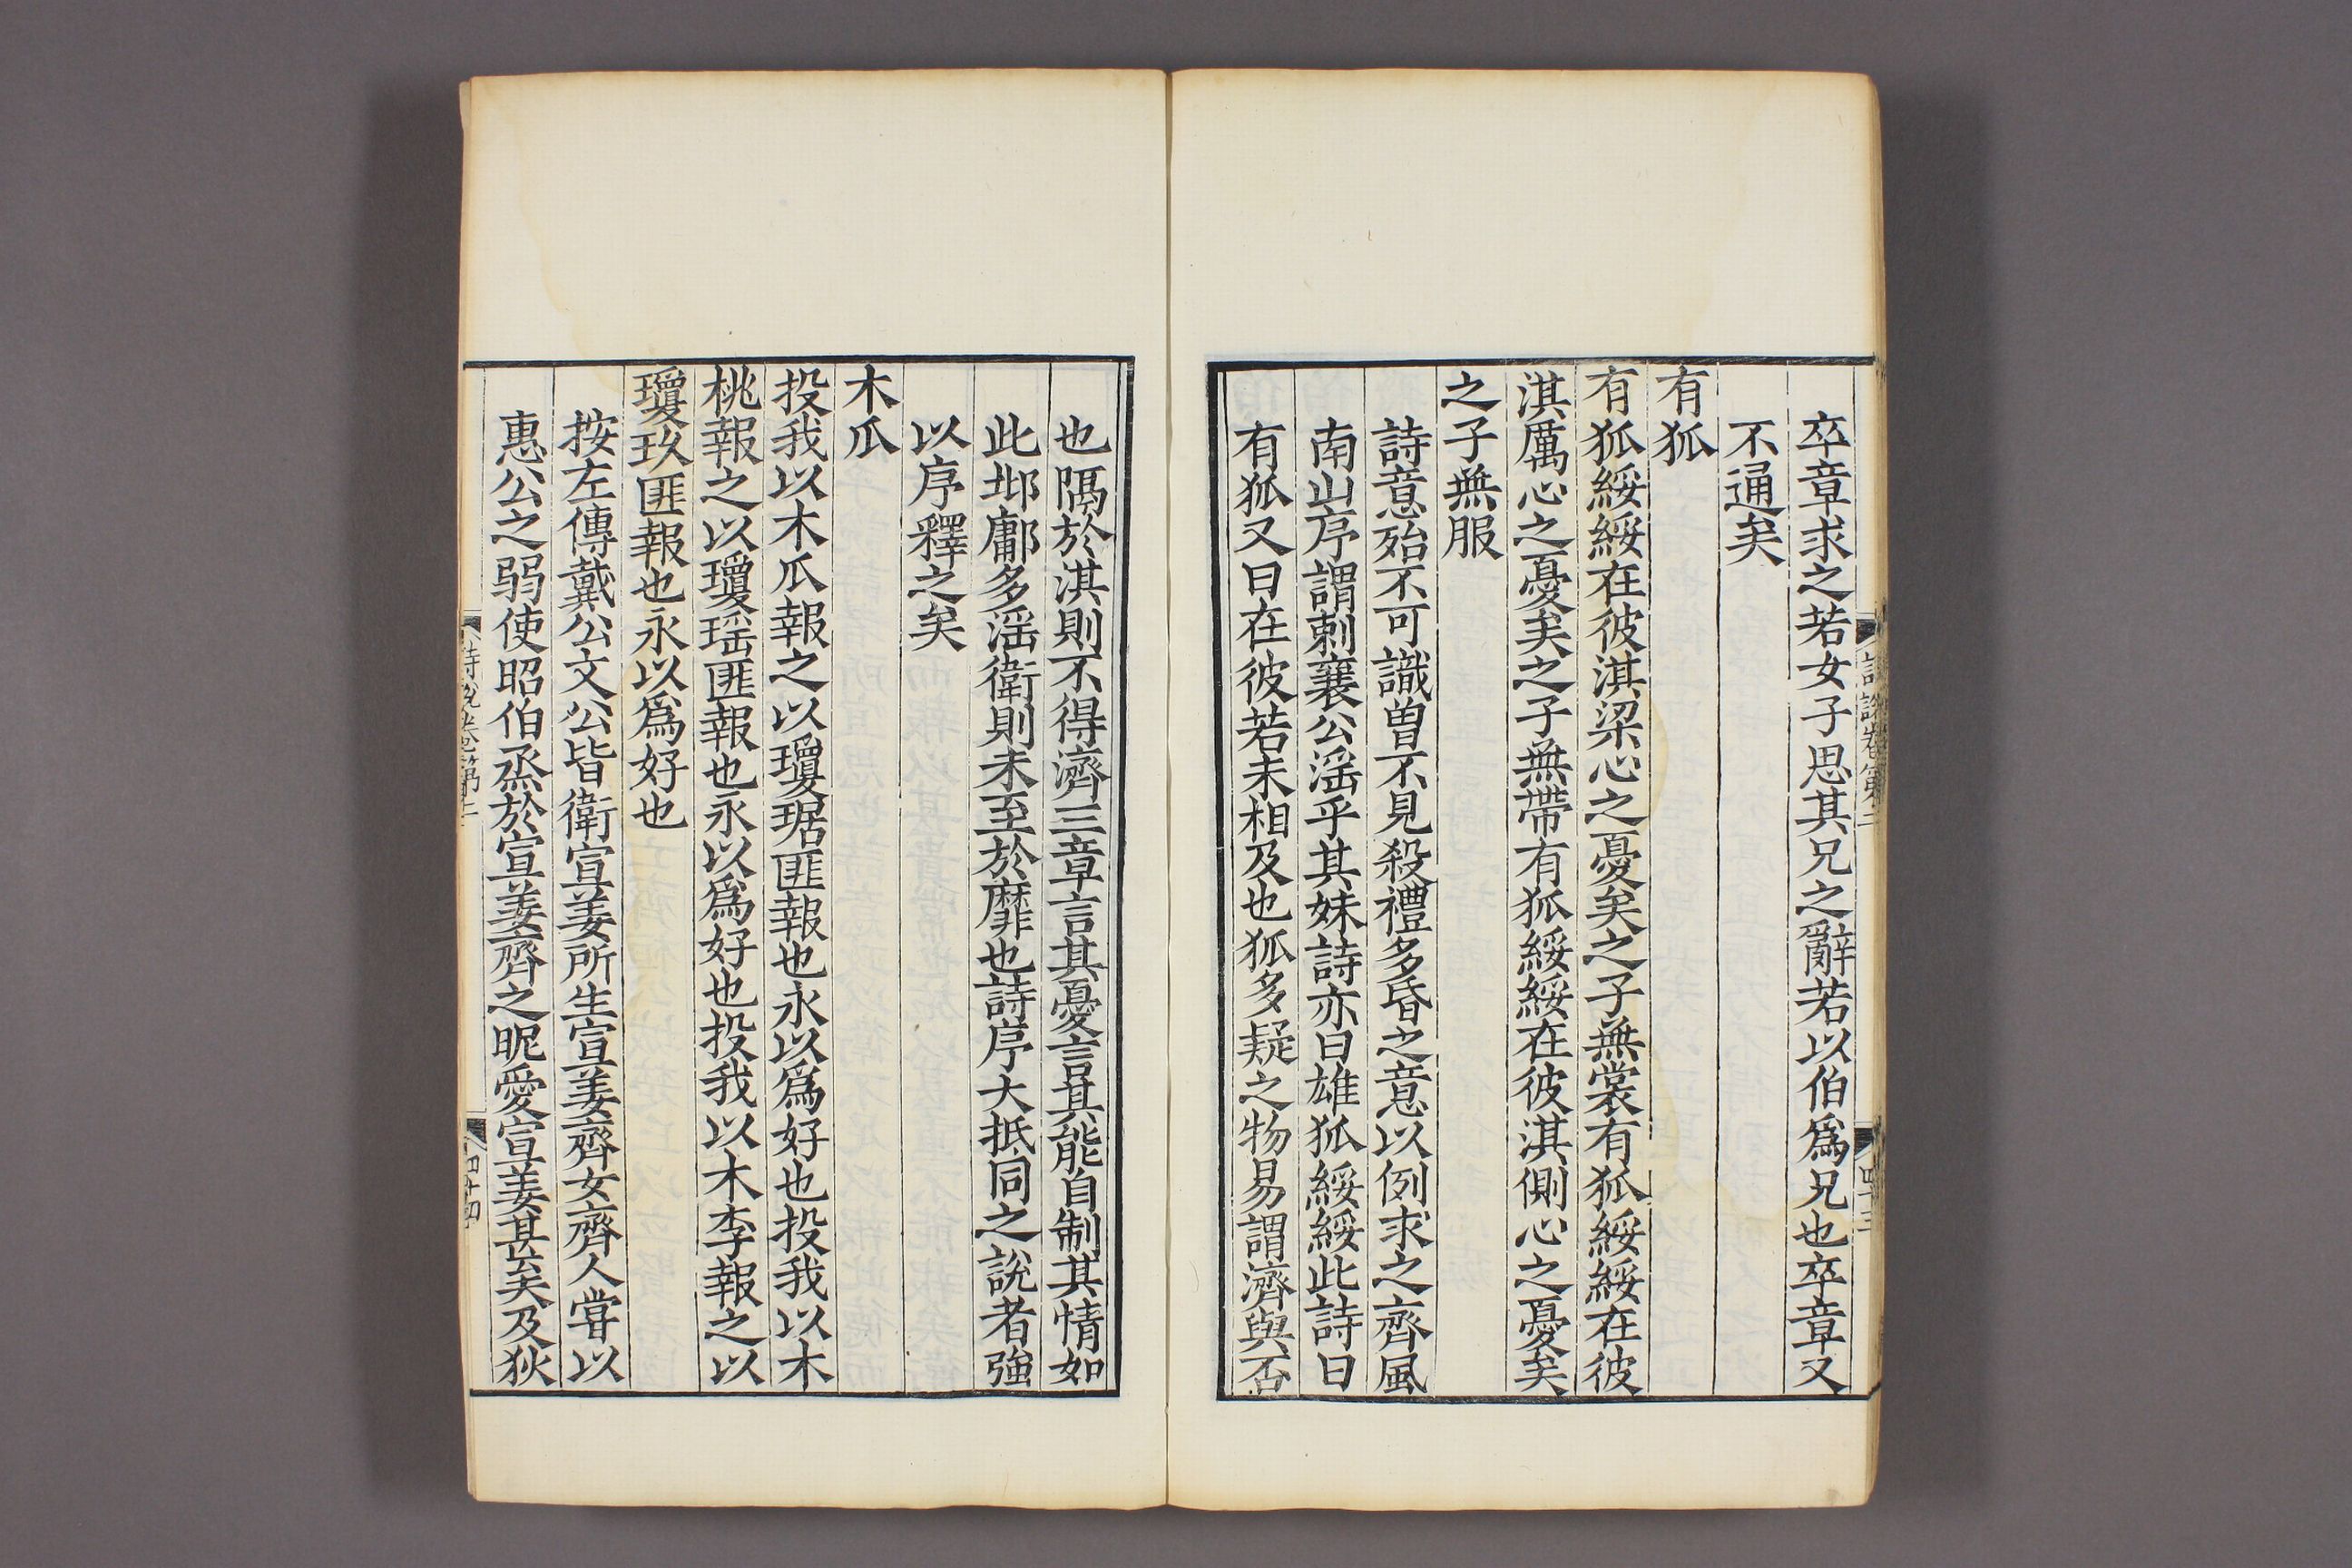 卒章求之若女子思其兄之辭若以伯爲兄也卒章又
不通矣
有狐
有狐綏綏在彼淇梁心之憂矣之子無裳有狐綏綏在彼
淇厲心之憂矣之子無帶有狐綏綏在彼淇側心之憂矣
之子無服
詩意殆不可識曽不見殺禮多昏之意以例求之齊風
南山序謂刺襄公淫乎其妹詩亦曰雄狐綏綏此詩曰
有狐又曰在彼若未相及也狐多疑之物易謂濟與否
也隔於淇則不得濟三章言其憂言其能自制其情如
此邶鄘多淫衛則未至於靡也詩序大抵同之說者強
以序釋之矣
木瓜
投我以木瓜報之以瓊琚匪報也永以爲好也投我以木
桃報之以瓊瑤匪報也永以爲好也投我以木李報之以
瓊玖匪報也永以爲好也
按左傳戴公文公皆衛宣姜所生宣姜齊女齊人嘗以
惠公之弱使昭伯烝於宣姜齊之昵愛宣姜甚矣及狄
詩說卷第三
四十三
四十四